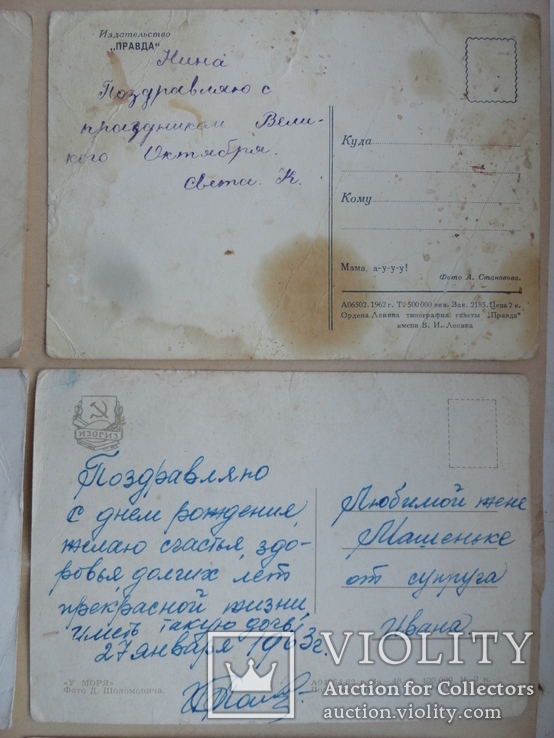 Издательство
„ПРАВДА"
Нина
Поздравляю с
праздником Вели-
кого Октября.
Света. К.
Куда
Кому
Мама, а-у-у-у!
Фото А. Становова.
А06502. 1962 г. Т 2 500 000 экз. Зак. 2185. Цена 2 к.
Ордена Ленина типография газеты „Правда"
имени В. И. Ленина
ИЗОГИЗ
Поздравляю
с днем рождения,
желаю счастья, здо-
ровья, долгих лет
прекрасной жизни,
иметь такую дочь!
27 января 1963 г.
Любимой жене
Машеньке
от супруга
Ивана.
«У МОРЯ»
Фото Д. Шоломовича.
VIOLITY
Auction for Collectors
auction.violity.com